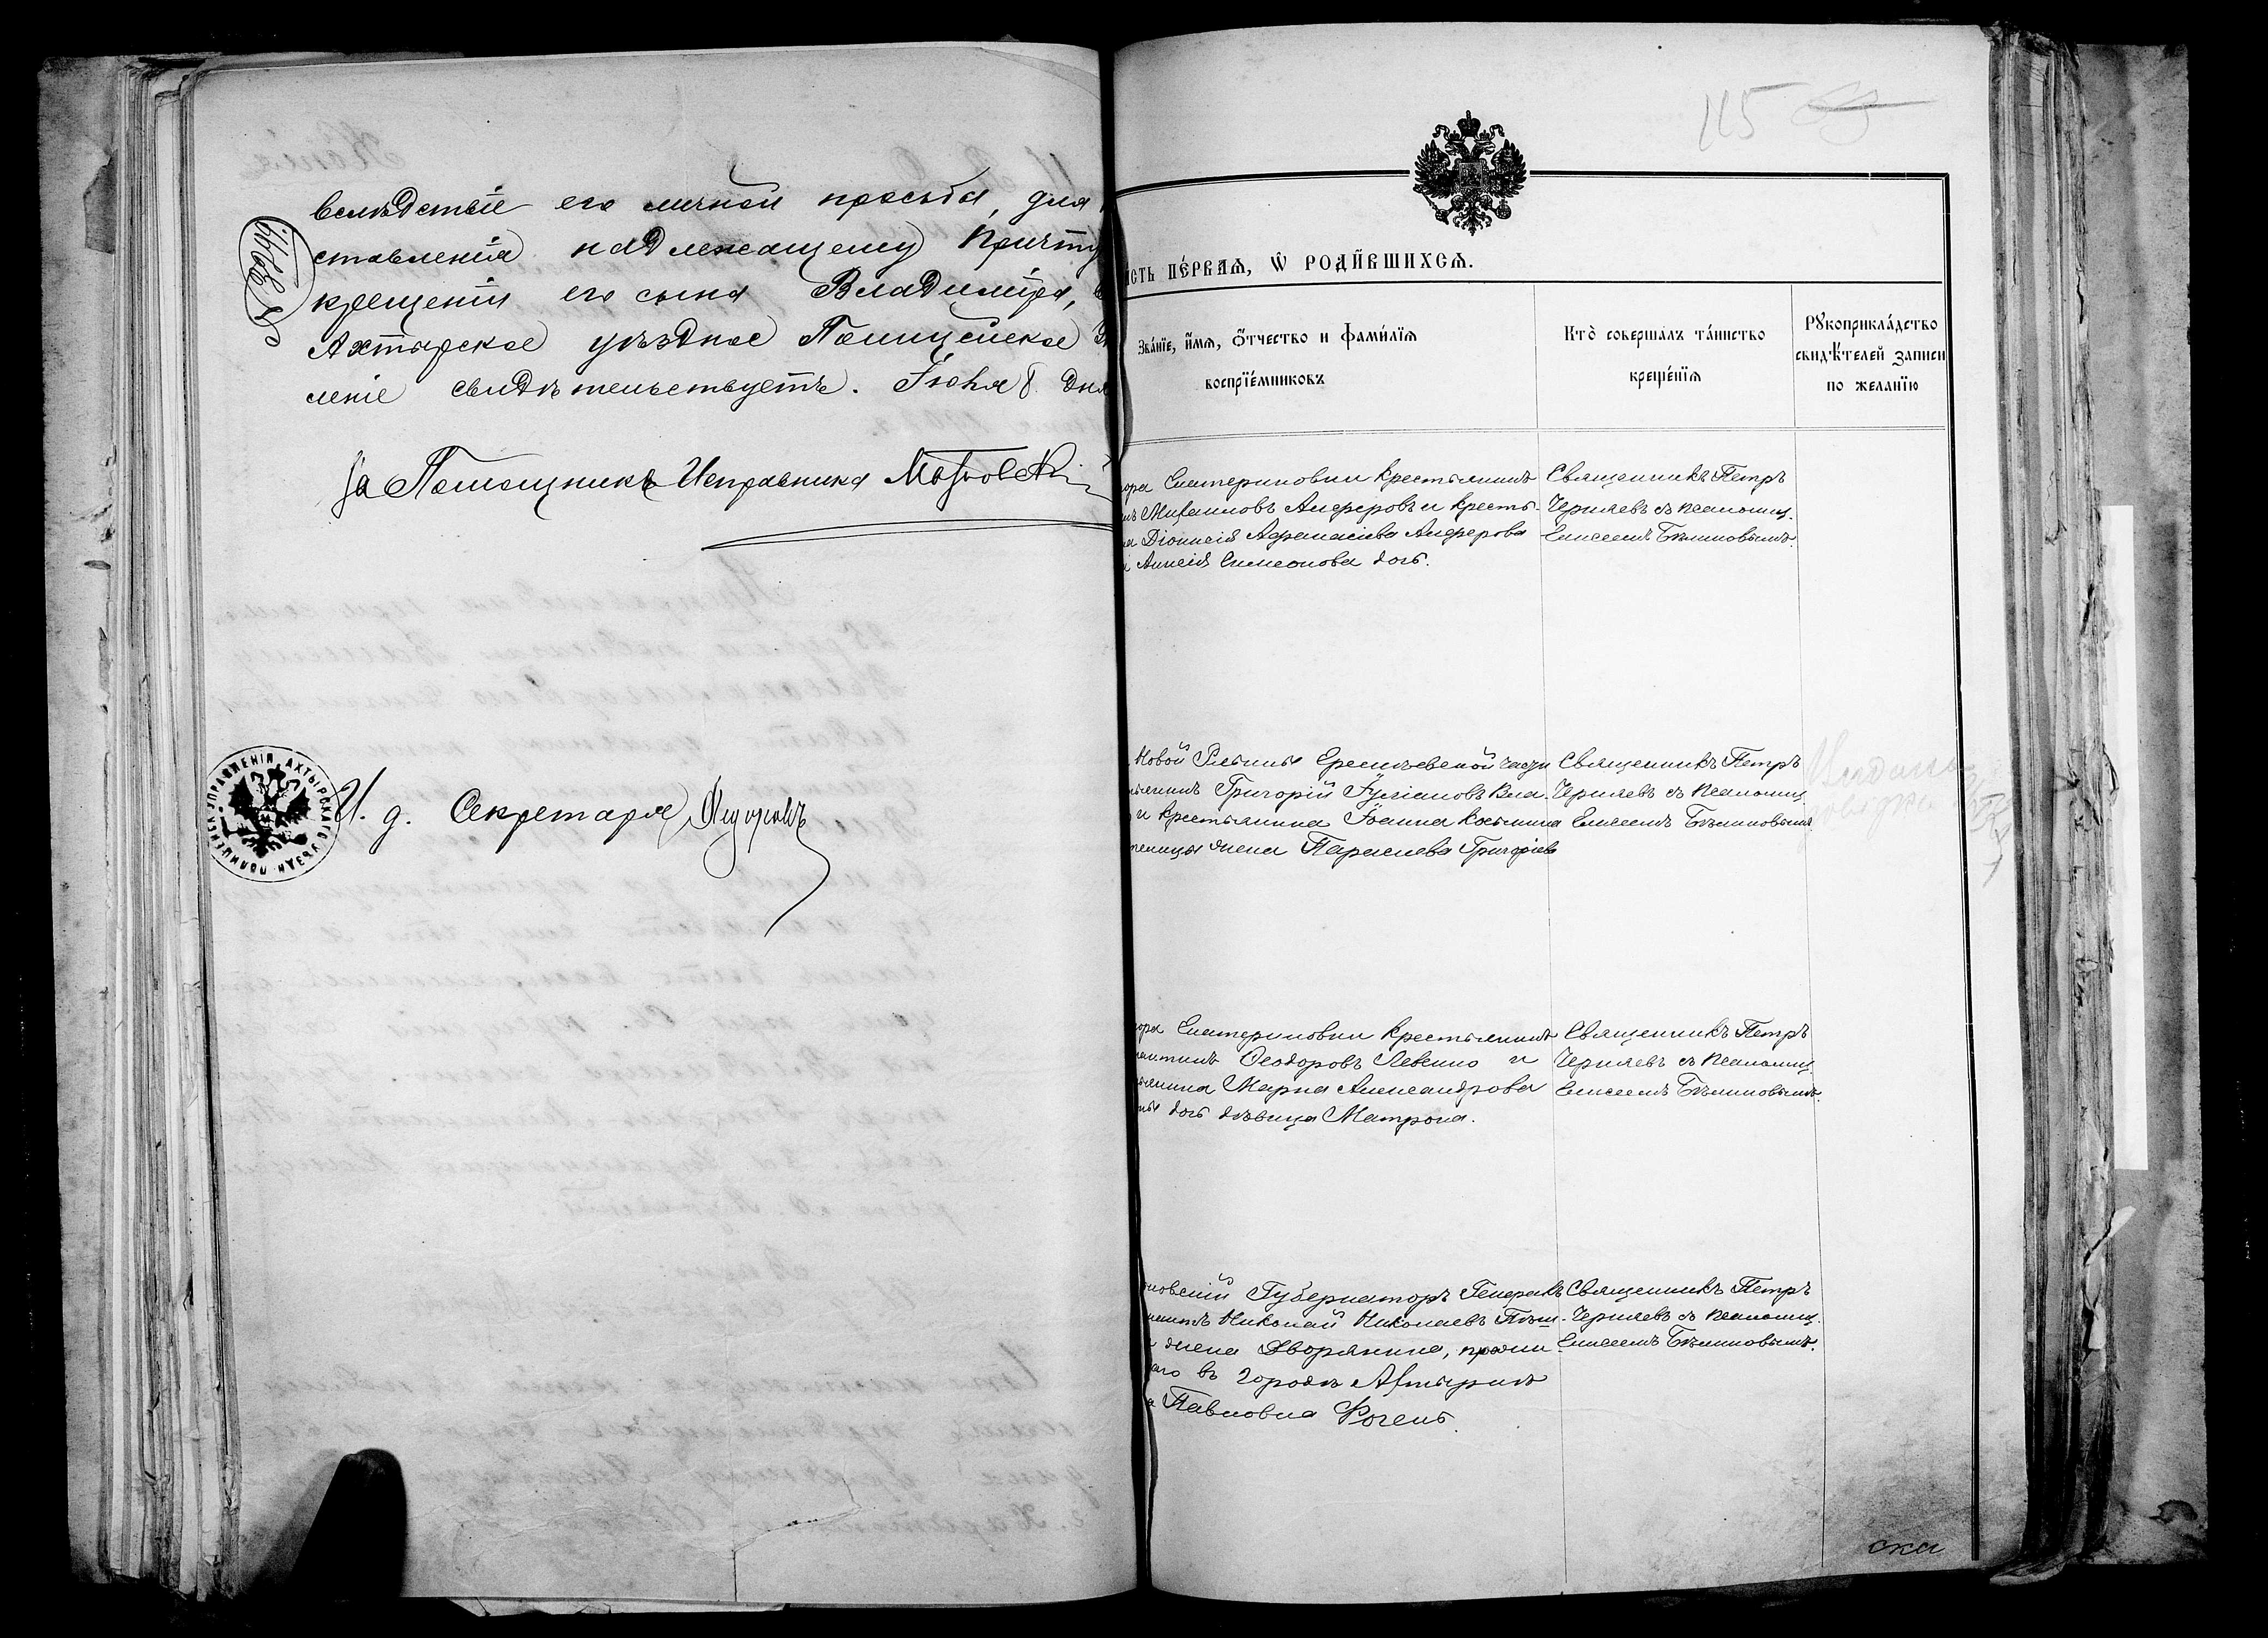 вслѣдствіе его личной просьбы, для
ставленія надлежащему Причту
крещеніи его сына Владиміра,
Ахтырское уѣздное Полицейское
леніе свидѣтельствуетъ. Іюня 8 дня
За Помощникъ Исправника
УПРАВЛЕНІЯ АХТЫРСКАГО УѢЗДН ПОЛИЦЕЙСК
И. д. Секретаря
115
ИСТЬ ПЕ́РВАЯ, Ѿ РОДИ́ВШИХСЯ.
Зва́нїе, и́мѧ, ѻ́тчество и фами́лїѧ
воспрїе́мниковъ
Кто̀ соверша́лъ та́инство
креще́нїѧ
Рꙋкоприкла́дство
свидѣ́телей записи
по жела́нїю
ора Екатериновки крестьянинъ
Михаиловъ Алферовъ и кресты-
на Діонисія Афанасіева Алферова
Алексія Симеонова дочь.
Священникъ Петръ
Черняевъ съ псаломщ.
Елисеемъ Бѣликовымъ.
Новой Рябины Еремѣевской части
тьянинъ Григорій Іуліановъ Вла-
и крестьянина Іоанна Косьмина
жена Параскева Григоріева
Священникъ Петръ
Черняевъ съ псаломщ.
Елисеемъ Бѣликовымъ
ора Екатериновки крестьянинъ
Ѳеодоровъ Левенко и
янина Марка Александрова
дочь дѣвица Матрона.
Священникъ Петръ
Черняевъ съ псаломщ.
Елисеемъ Бѣликовымъ.
ковскій Губернаторъ Генералъ
Николай Николаевъ Пѣш-
жена Дворянина, прожи-
аго въ городѣ Ахтыркѣ
а Павловна Рогень.
Священникъ Петръ
Черняевъ съ псаломщ.
Елисеемъ Бѣликовымъ.
ска